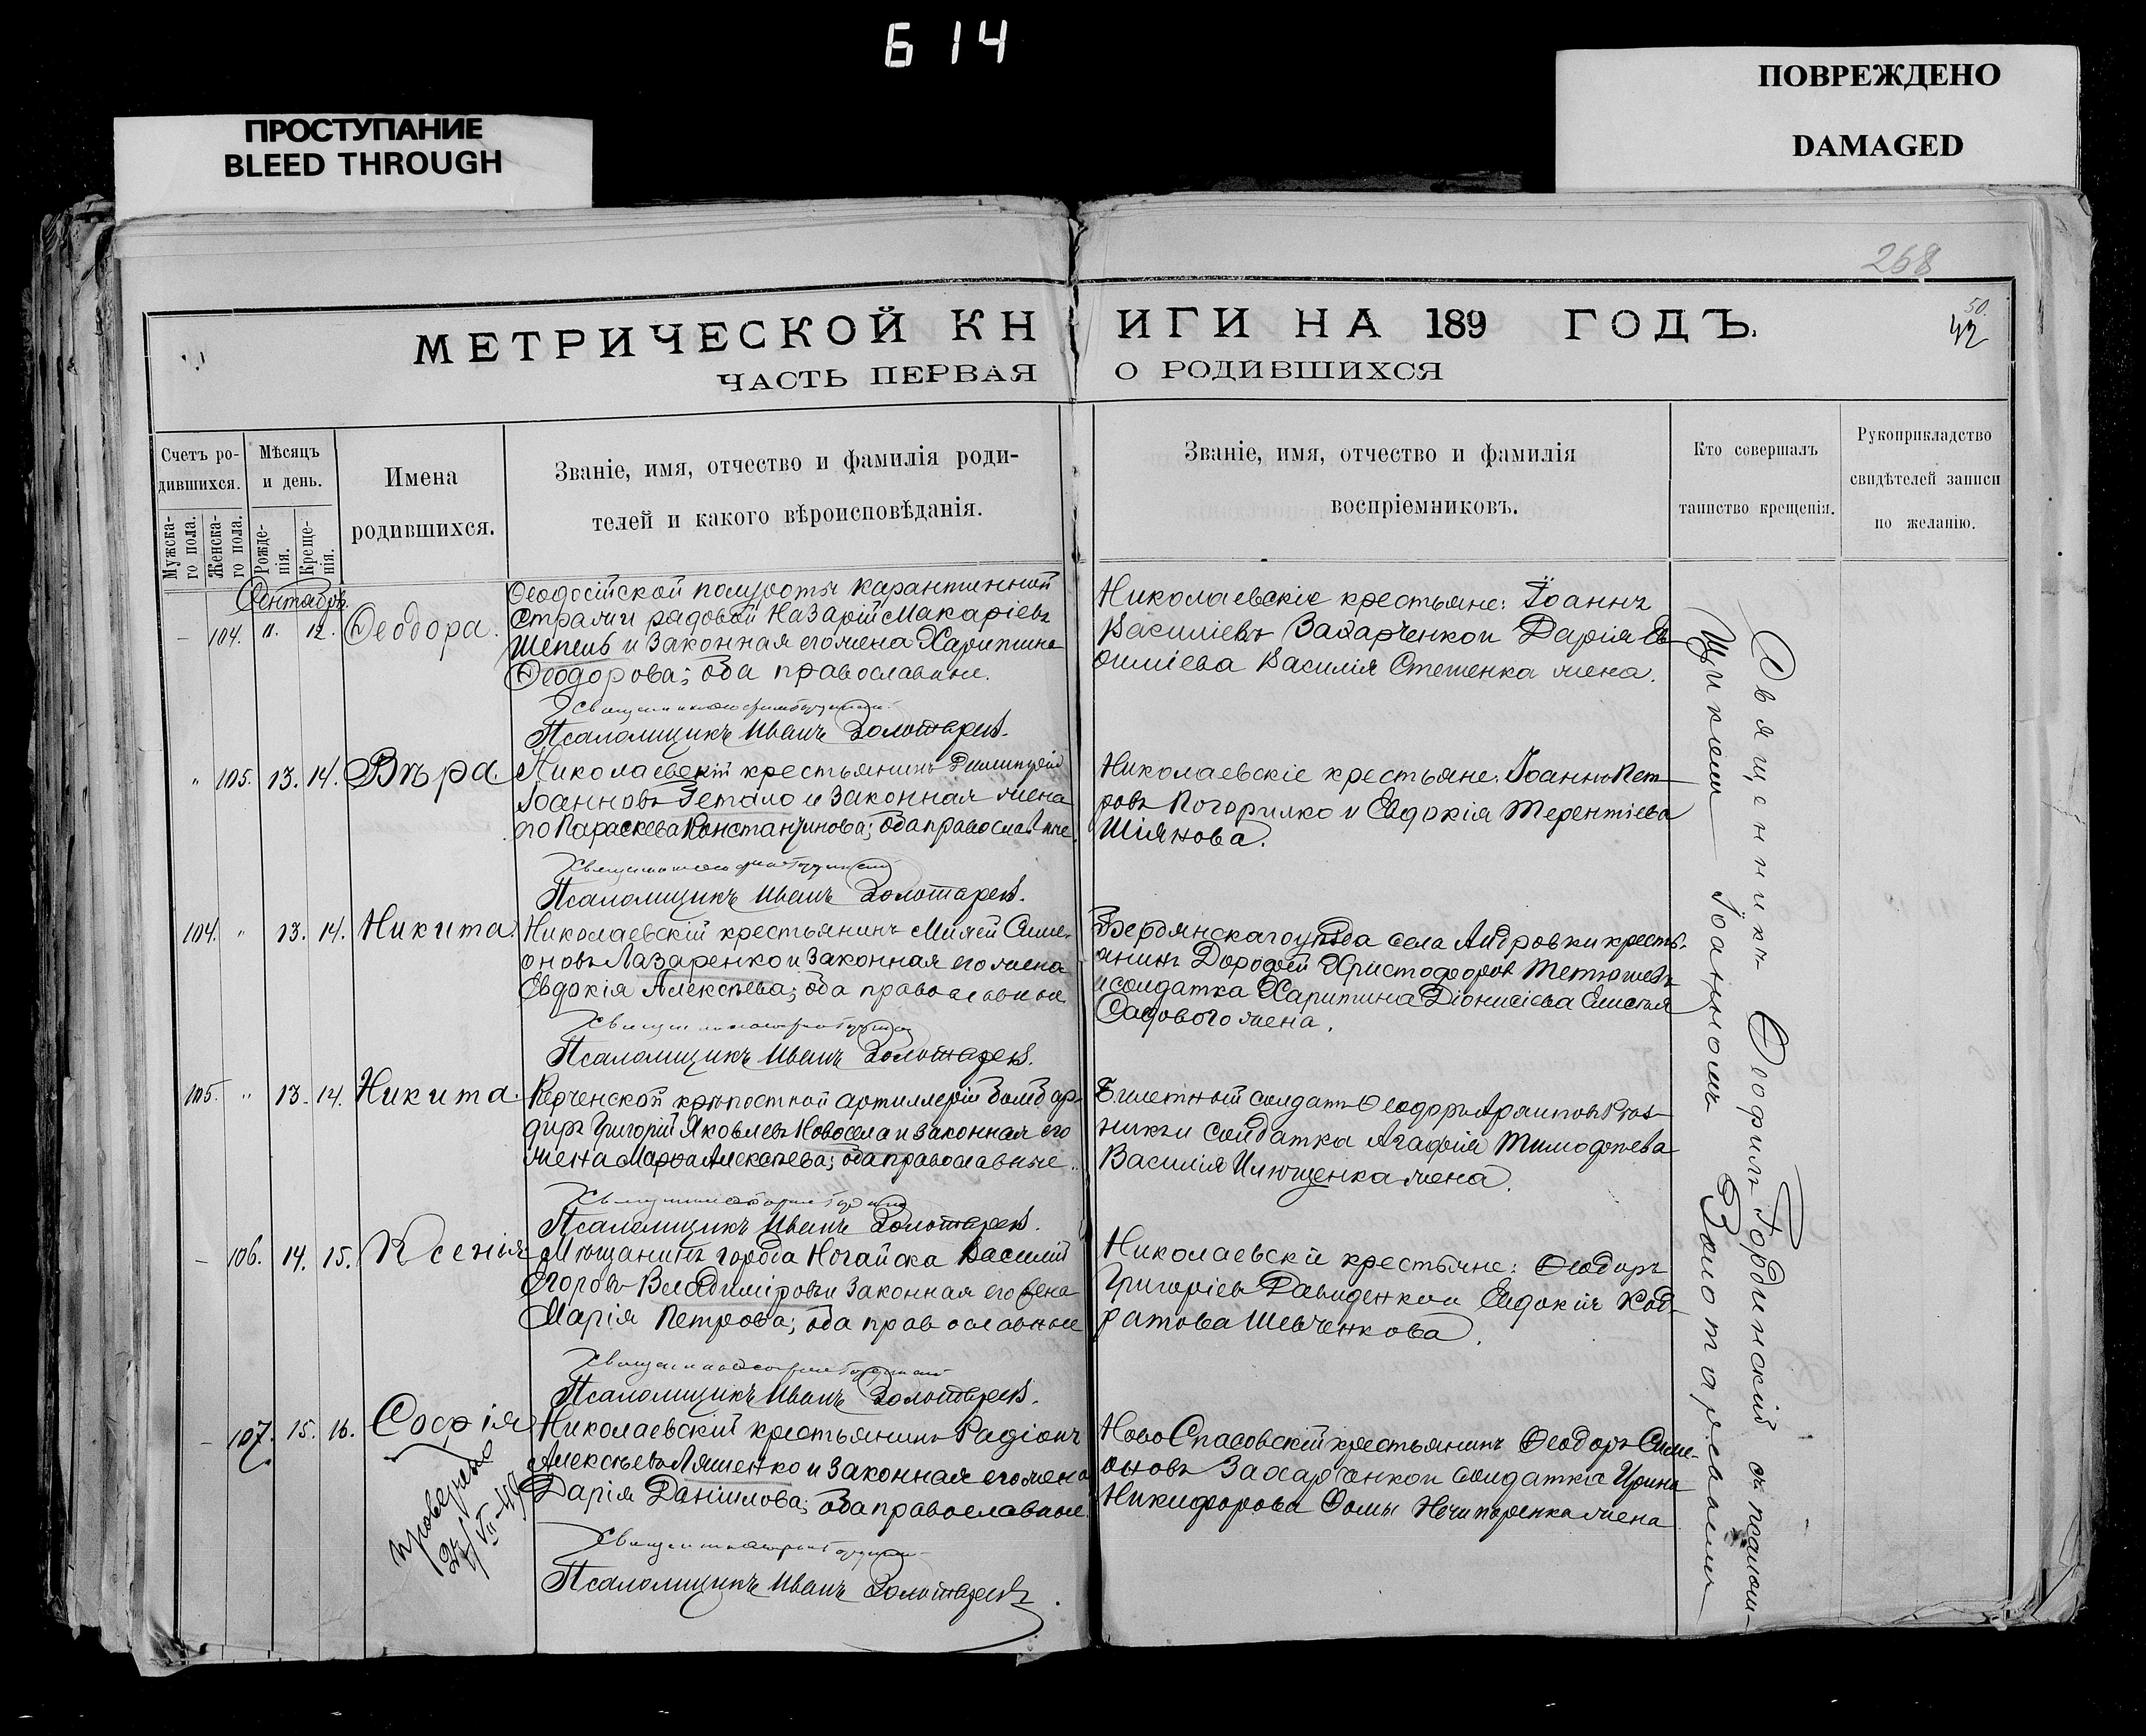 614
ПРОСТУПАНИЕ
BLEED THROUGH
ПОВРЕЖДЕНО
DAMAGED
268
50.
42
МЕТРИЧЕСКОЙ КНИГИ НА 189 ГОДЪ.
ЧАСТЬ ПЕРВАЯ О РОДИВШИХСЯ
Счетъ ро-
дившихся.
Мужска-
го пола.
Женска-
го пола.
Мѣсяцъ
и день.
Рожде-
нія.
Креще-
нія.
Имена
родившихся.
Званіе, имя, отчество и фамилія роди-
телей и какого вѣроисповѣданія.
Званіе, имя, отчество и фамилія
воспріемниковъ.
Кто совершалъ
таинство крещенія.
Рукоприкладство
свидѣтелей записи
по желанію.
Сентябрь.
– 104. 11. 12. Ѳеодора.
Ѳеодосійской полуроты карантинной
стражи рядовой Назарій Макаріевъ
Шепель и законная его жена Харитина
Ѳеодорова; оба православные.
Псаломщикъ Иванъ Золотаревъ.
Николаевскіе крестьяне: Іоаннъ
Василіевъ Захарченко и Дарія
Василія Стешенка жена.
" 105. 13. 14. Вѣра
Николаевскій крестьянинъ Димитрій
Іоанновъ Гетало и законная жена
его Параскева Константинова; оба православные.
Псаломщикъ Иванъ Золотаревъ.
Николаевскіе крестьяне: Іоаннъ Пет-
ровъ Погорилко и Евдокія Терентіева
Шіянова.
104. " 13. 14. Никита.
Николаевскій крестьянинъ Симе-
оновъ Лазаренко и законная его жена
Евдокія Алексѣева; оба православные
Псаломщикъ Иванъ Золотаревъ.
Бердянскаго уѣзда села Андровки кресть-
янинъ Дорофей Христофоровъ
и солдатка Харитина Діонисіева
Садового жена.
105. " 13. 14. Никита.
Керченской крѣпостной артиллеріи бомбар-
диръ Григорій Яковлевъ Новосела и законная его
жена Марфа Алексѣева; оба православные.
Псаломщикъ Иванъ Золотаревъ.
Билетный солдатъ Ѳеодоръ
и солдатка Агафія Тимофѣева
Василія Илющенка жена.
– 106. 14. 15. Ксенія
Мѣщанинъ города Ногайска Василій
Егоровъ Владиміровъ и законная его жена
Марія Петрова; оба православные
Псаломщикъ Иванъ Золотаревъ.
Николаевскіе крестьяне: Ѳеодоръ
Григоріевъ Давиденко и Евдокія Код-
ратова Шевченкова.
– 107. 15. 16. Софія
провѣрено
Николаевскій крестьянинъ Радіонъ
Алексѣевъ Ляшенко и законная его жена
Дарія Даніилова; оба православные.
Псаломщикъ Иванъ Золотаревъ.
Ново Спасовскій крестьянинъ Ѳеодоръ Симе-
оновъ Захарченко и солдатка Ирина
Никифорова Ѳомы Нечипоренка жена
Священникъ Ѳеофилъ Гординскій съ псалом-
щикомъ Іоанномъ Золотаревымъ